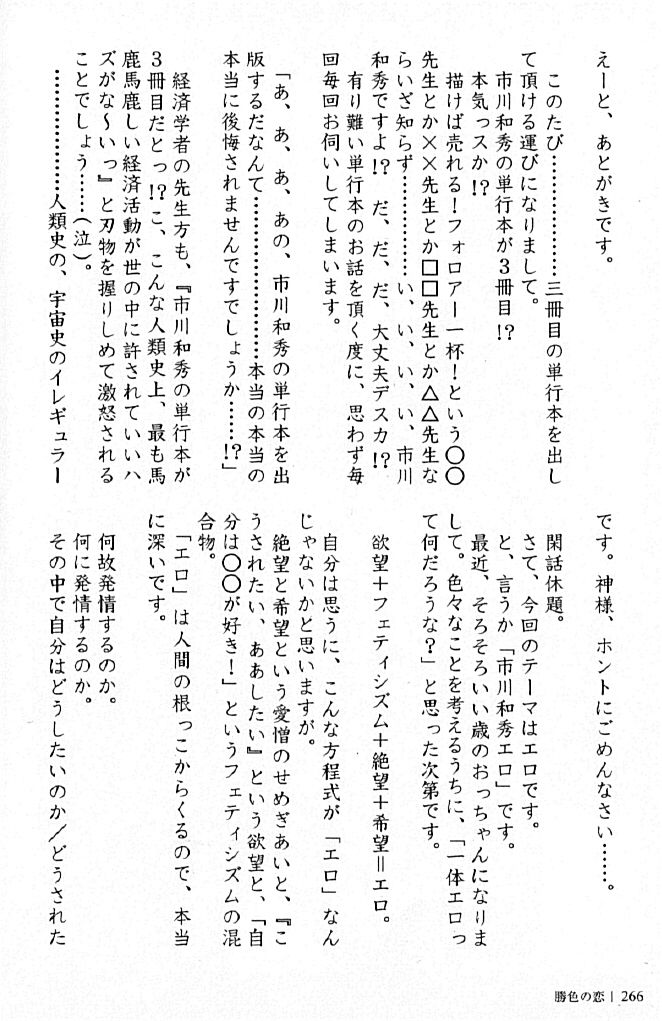 えーと、あとがきです。
このたび………………三冊目の単行本を出し
て頂ける運びになりまして。
市川和秀の単行本が３冊目!?
本気っスか!?
描けば売れる！フォロアー一杯！という○○
先生とか××先生とか□□先生とか△△先生な
らいざ知らず………………い、い、い、い、市川
和秀ですよ!?　だ、だ、だ、大丈夫デスカ!?
有り難い単行本のお話を頂く度に、思わず毎
回毎回お伺いしてしまいます。
「あ、あ、あ、あの、市川和秀の単行本を出
版するだなんて……………………本当の本当の
本当に後悔されませんですでしょうか……!?」
経済学者の先生方も、『市川和秀の単行本が
３冊目だとっ!?こ、こんな人類史上、最も馬
鹿馬鹿しい経済活動が世の中に許されていいハ
ズがな〜いっ』と刃物を握りしめて激怒される
ことでしょう……（泣）。
………………………人類史の、宇宙史のイレギュラー
です。神様、ホントにごめんなさい………。
閑話休題。
さて、今回のテーマはエロです。
と、言うか「市川和秀エロ」です。
最近、そろそろいい歳のおっちゃんになりま
して。色々なことを考えるうちに、「一体エロっ
て何だろうな？」と思った次第です。
欲望＋フェティシズム＋絶望＋希望＝エロ。
自分は思うに、こんな方程式が「エロ」なん
じゃないかと思いますが。
絶望と希望という愛憎のせめぎあいと、『こ
うされたい、ああしたい』という欲望と、「自
分は○○が好き！」というフェティシズムの混
合物。
「エロ」は人間の根っこからくるので、本当
に深いです。
何故発情するのか。
何に発情するのか。
その中で自分はどうしたいのか／どうされた
勝色の恋 | 266